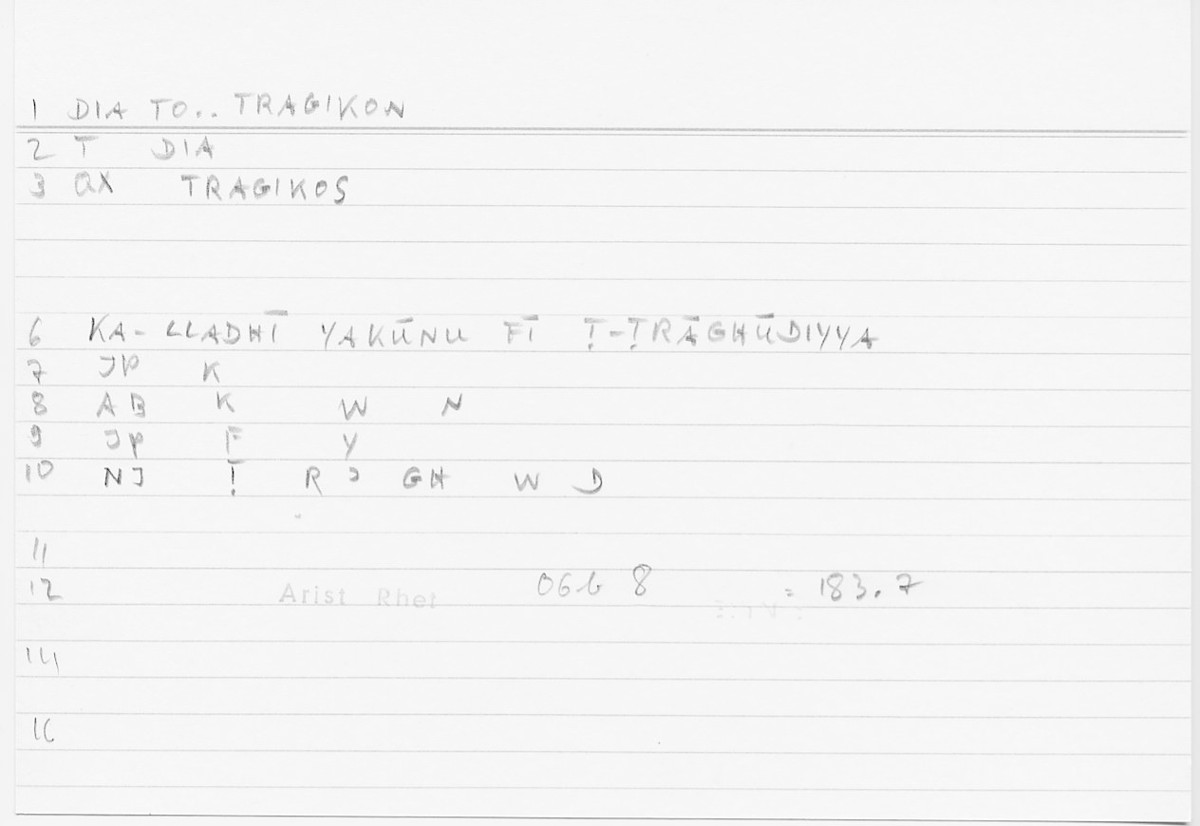 1 DIA TO.. TRAGIKON
2 T DIA
3 QX TRAGIKOS
6 KA-LLADHĪ YAKŪNU FĪ Ṭ-ṬRĀGHŪDIYYA
7 JP K
8 AB K W N
9 JP F Y
10 NJ Ṭ R J GH W D
11
12 Arist Rhet 06b 8 = 183.7
14
16